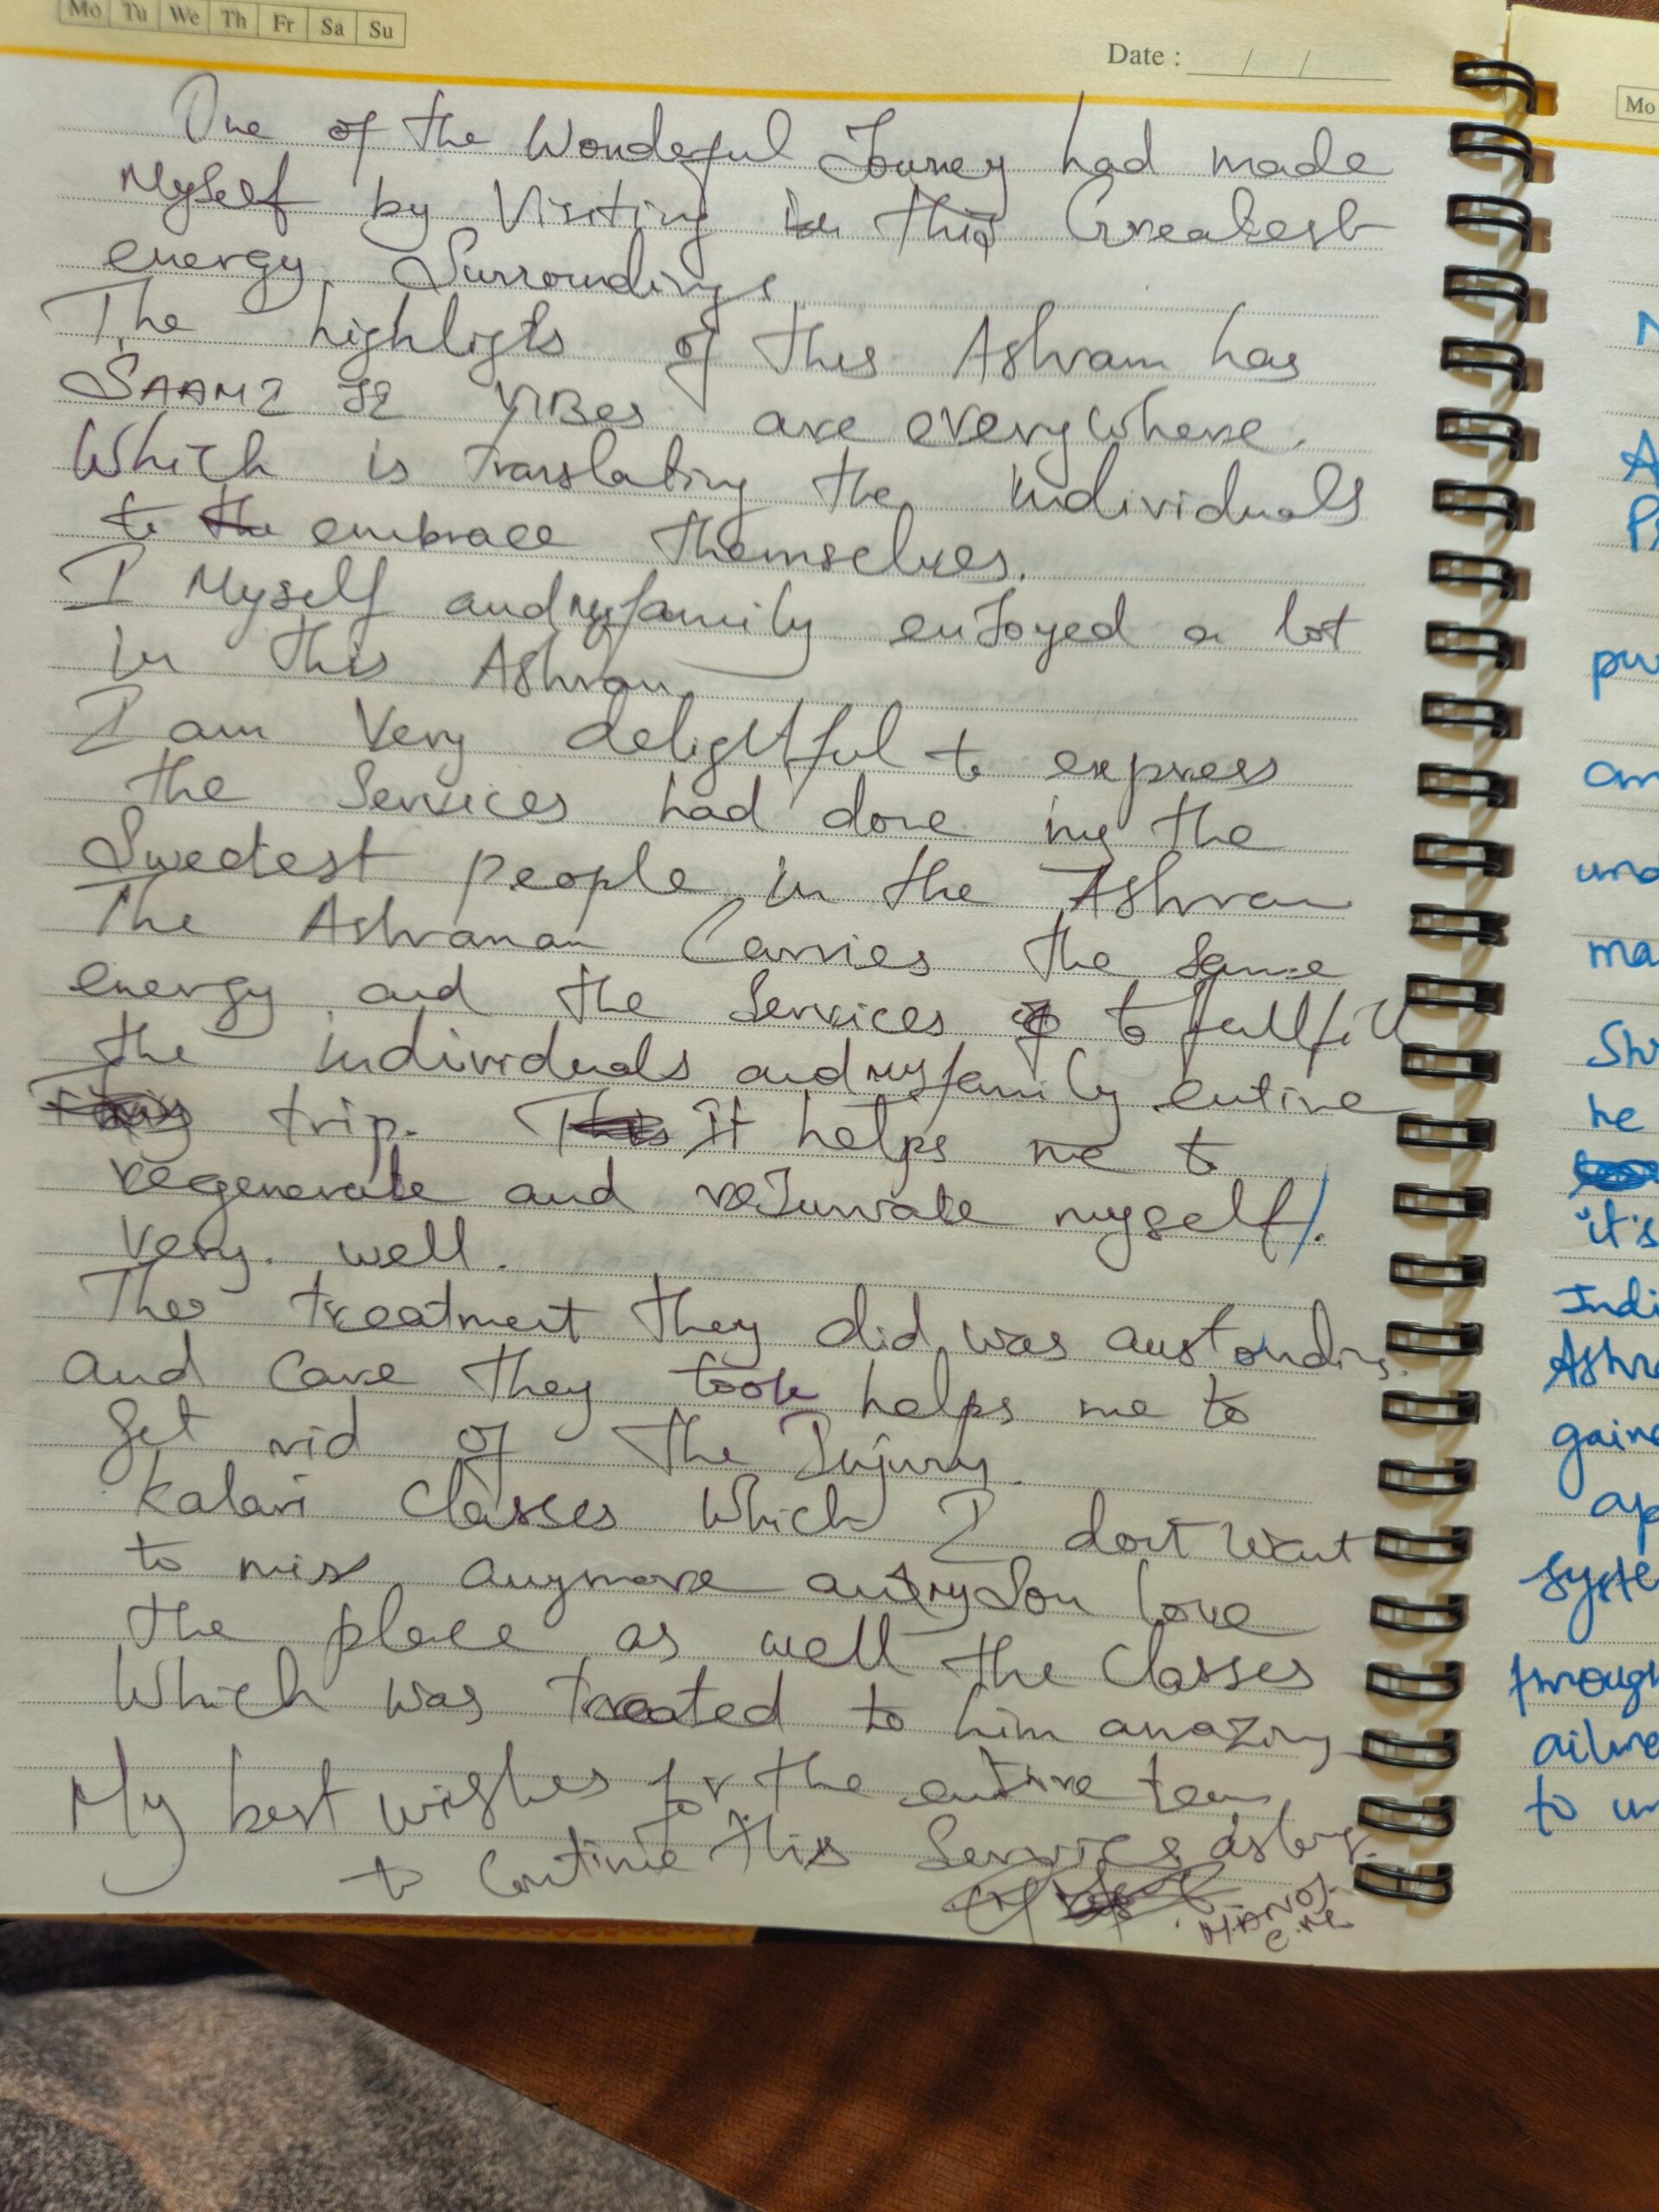 Mo Tu We Th Fr Sa Su
Date : / /
One of the Wondeful Journey had made
Myself by Visiting this Greatest
energy Surroundings
The highligts of this Ashram has
SAAM2 VIBes are everywhere.
Which is translating the individuals
to embrace themselves.
I Myself and my family enJoyed a lot
in this Ashram
I am Very delightful to express
the Services had done by the
Sweetest people in the Ashram
The Carries the same
energy and the Services to fullfill
the individuals and my family entire
trip. It helps me to
regenerate and myself.
Very. well.
The treatment they did was
and Care they took helps me to
Get rid of the Injury.
Kalari Classes Which I dont want
to miss anymore my Son love
the place as well the Classes
Which was treated to him amaZing
My best wishes for the entire team
to Continue this Services
MANOJ
Mo